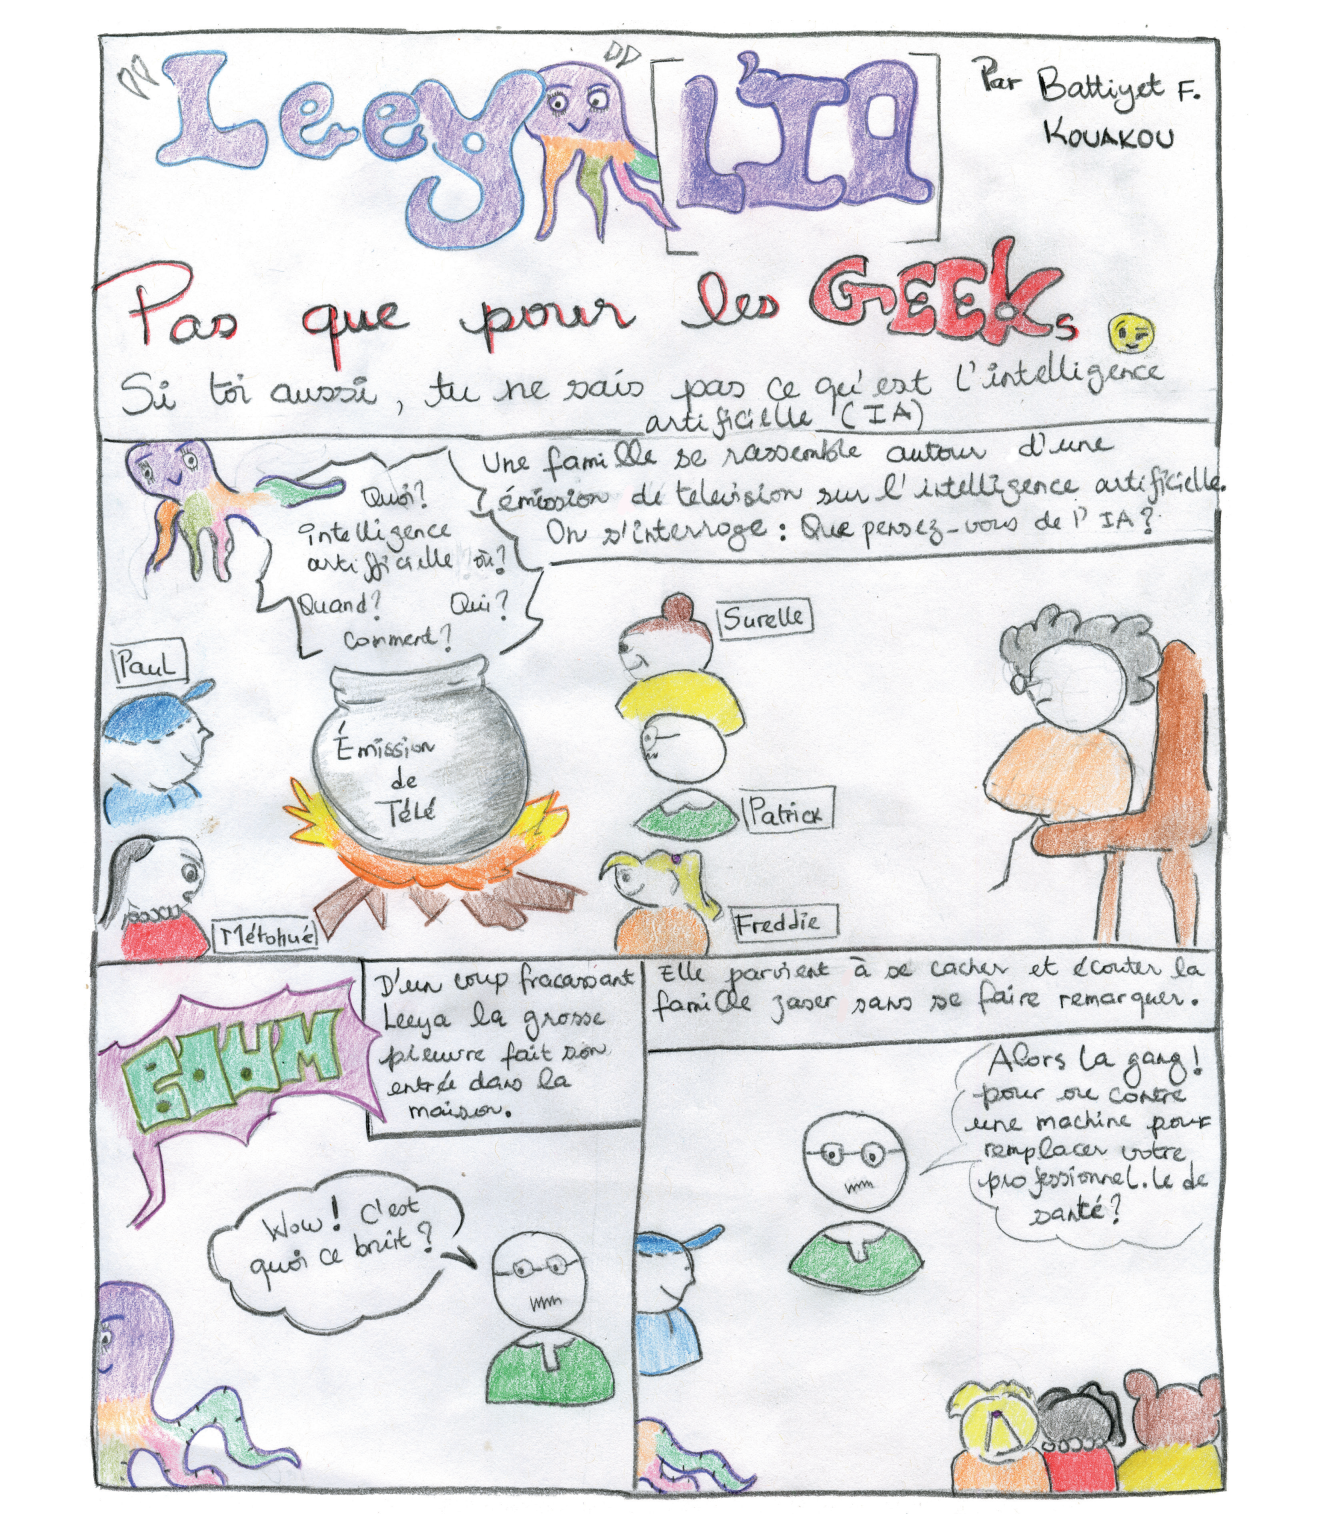 Leeya [L'IA]
Par Battiyet F.
KOUAKOU
Pas que pour les GEEKs
Si toi aussi, tu ne sais pas ce qu'est l'intelligence
artificielle (IA)
Une famille se rassemble autour d'une
émission de télévision sur l'intelligence artificielle.
On s'interroge : Que pensez-vous de l'IA?
Quoi?
intelligence
artificielle où?
Quand? Qui?
comment?
Paul
Surelle
Émission
de
Télé
Patrick
Métohué
Freddie
BOUM
D'un coup fracassant
Leeya la grosse
pieuvre fait son
entrée dans la
maison.
Wow! C'est
quoi ce bruit?
Elle parvient à se cacher et écouter la
famille jaser sans se faire remarquer.
Alors la gang!
pour ou contre
une machine pour
remplacer votre
professionnel.le de
santé?